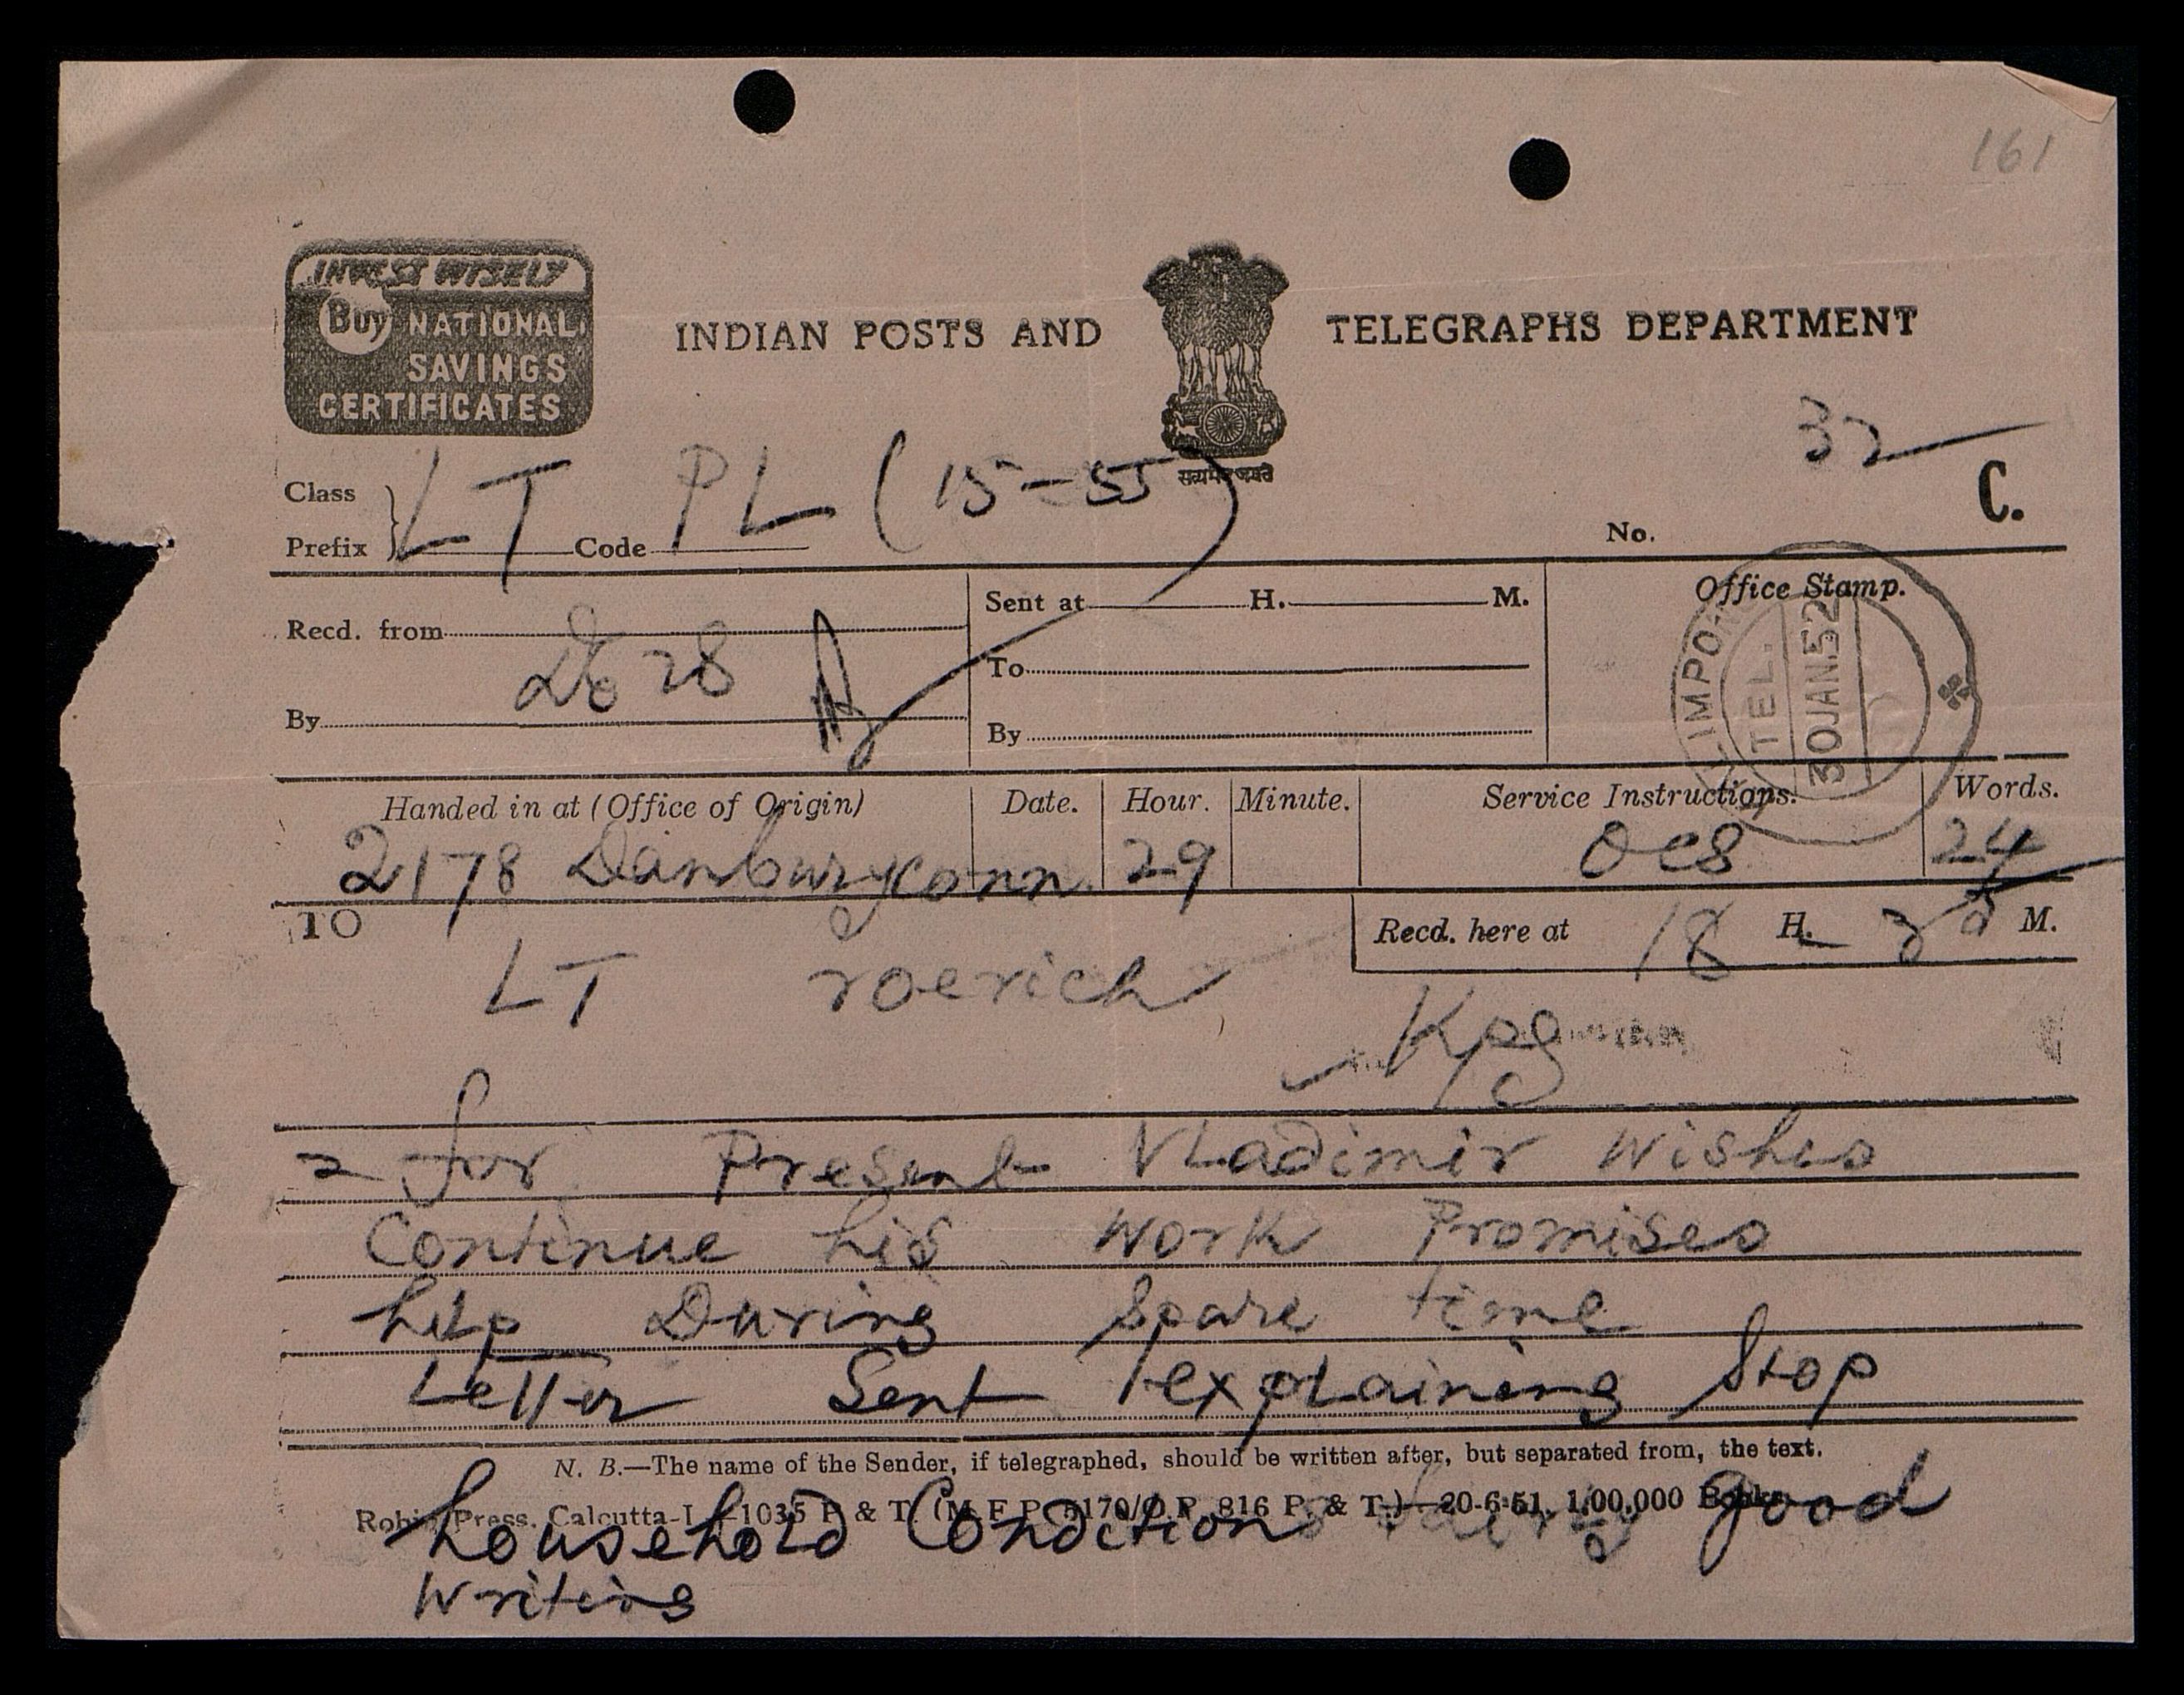 161
INVEST WISELY
Buy NATIONAL
SAVINGS
CERTIFICATES
INDIAN POSTS AND TELEGRAPHS DEPARTMENT
सत्यमेव जयते
32
C.
Class
Prefix } LT Code PL (15-55)
No.
Recd. from
28
By
Sent at H. M.
To
By
Office Stamp.
LIMPO
TEL.
30JAN.52
Handed in at (Office of Origin) Date. Hour. Minute. Service Instructions. Words.
2178 Danburyconn. 29 24
TO
Recd. here at 18 H. 35 M.
LT roerich
Kpg
= for Present Vladimir Wishes
Continue his work Promises
help During Spare time
Letter Sent explaining Stop
N. B.—The name of the Sender, if telegraphed, should be written after, but separated from, the text.
Press, Calcutta-1 —1035 P & T. 816 P. & T.)—20-6-51. 1,00,000 Books
household Conditions good
writing